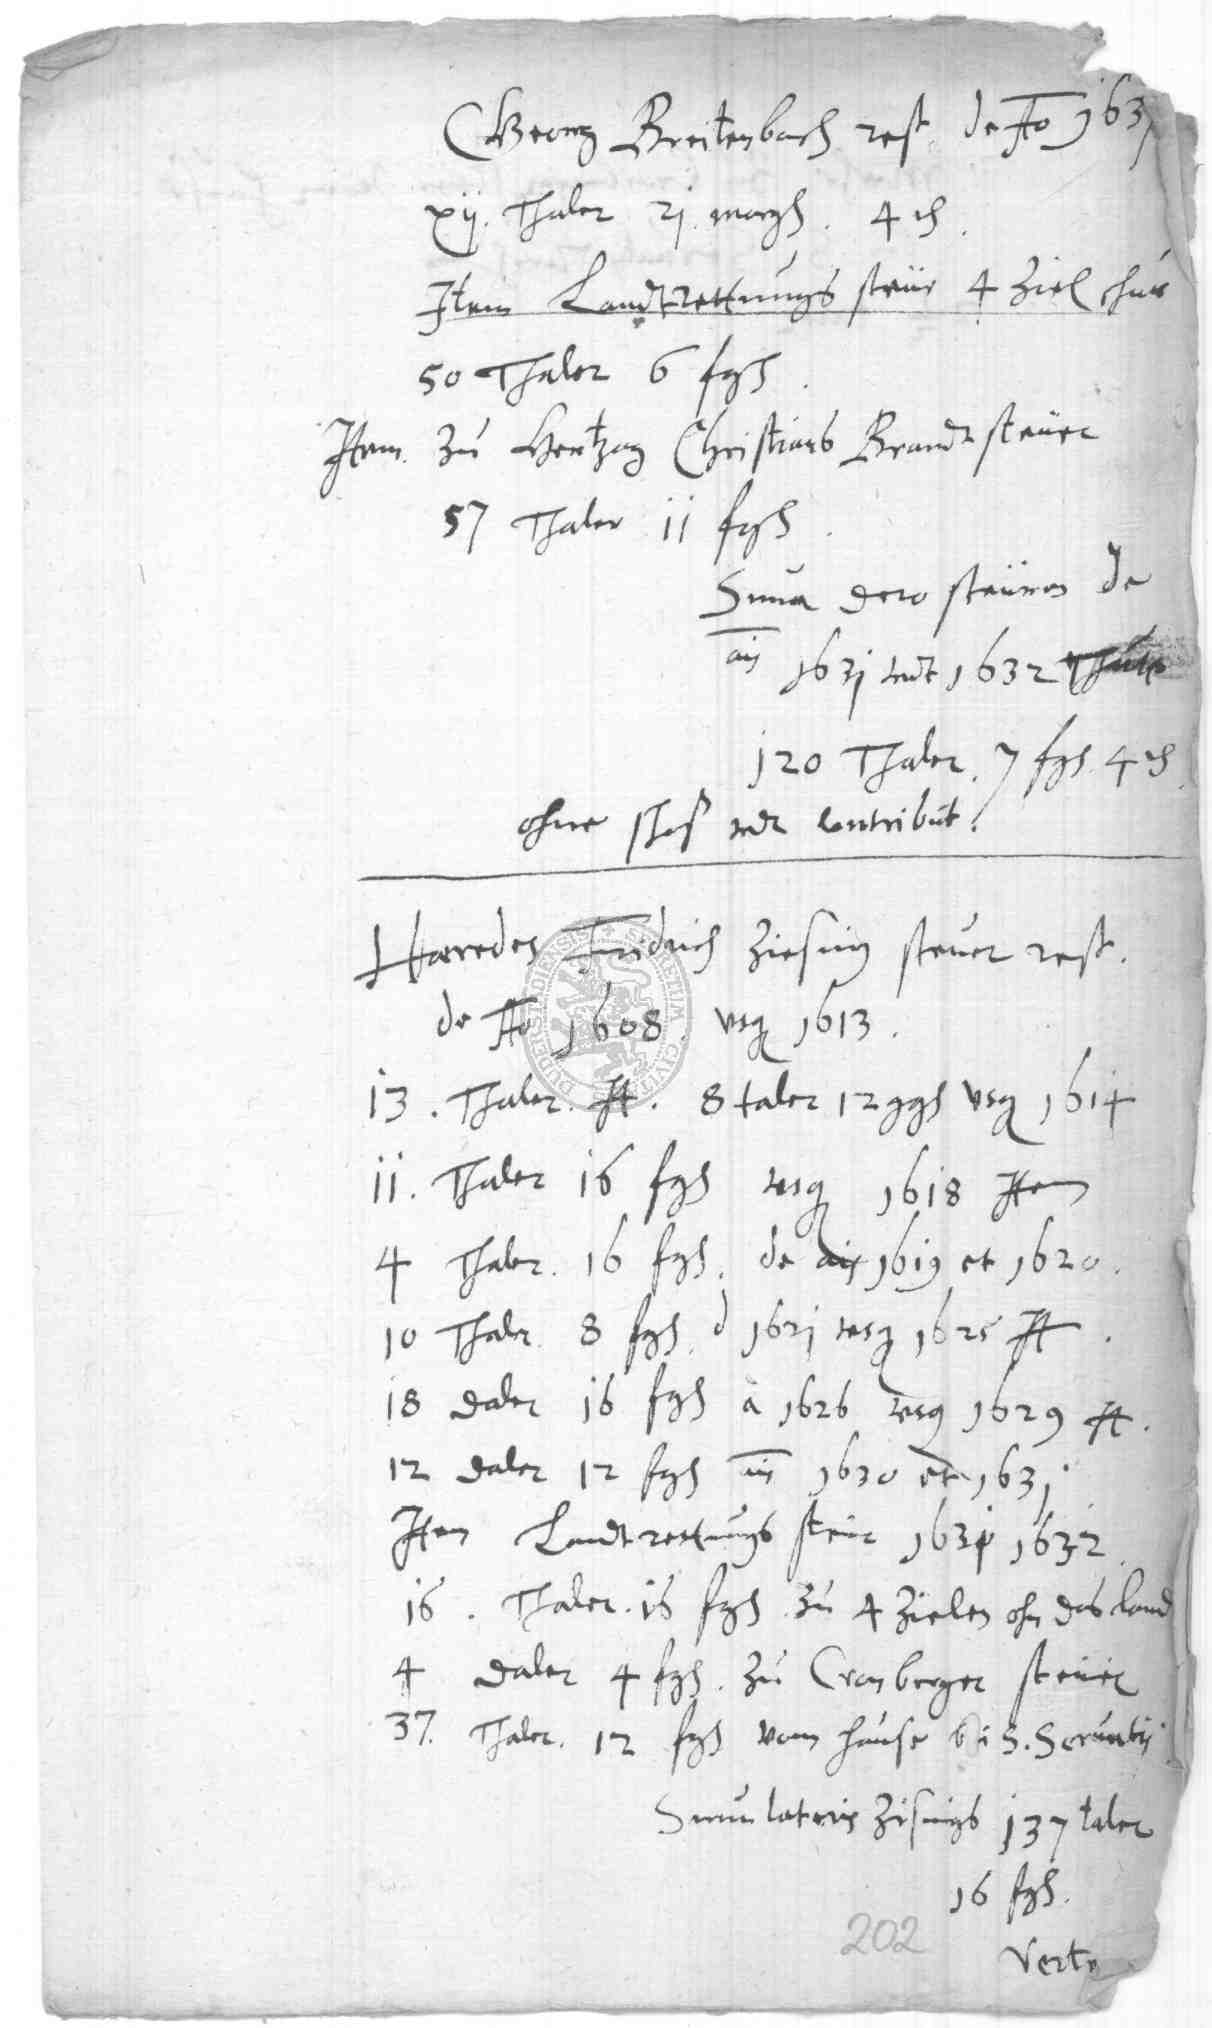 Georg Breitenbach rest. de Ao 1631
xij. Thaler 21. margs. 4 ₰.
Item Landtrettungs steür 4 Ziel
50 Thaler 6 fgs.
Item. Zu Hertzog Christians Brandt steüer
57 Thaler 11 fgs.
Suma dero steüren de
ais 1631 undt 1632
120 Thaler. 7 fgs. 4 ₰.
ohne schoß undt contribut.
Haeredes Fridrich Ziesing steuer rest.
de Ao 1608. usq 1613.
13. Thaler. It. 8 taler 12 ggs usq 1614
11. Thaler 16 fgs usq 1618 Item
4 Thaler. 16 fgs. de ais 1619 et 1620.
10 Thaler 8 fgs. d 1621 usq 1625 It.
18 daler 16 fgs a 1626 usq 1629 It.
12 daler 12 fgs ais 1630 et 1631.
Item Landtrettungs steür 1631 1632.
16. Thaler. 16 fgs. zu 4 Zielen ohn das land
4 daler 4 fgs. zu Cronberger steüer
37. Thaler. 12 fgs vom hause bei S. Servatij
Sum lateris Zisings 137 taler
16 fgs.
202
Verte
SIGILLUM CIVITATIS DUDERSTADIENSIS